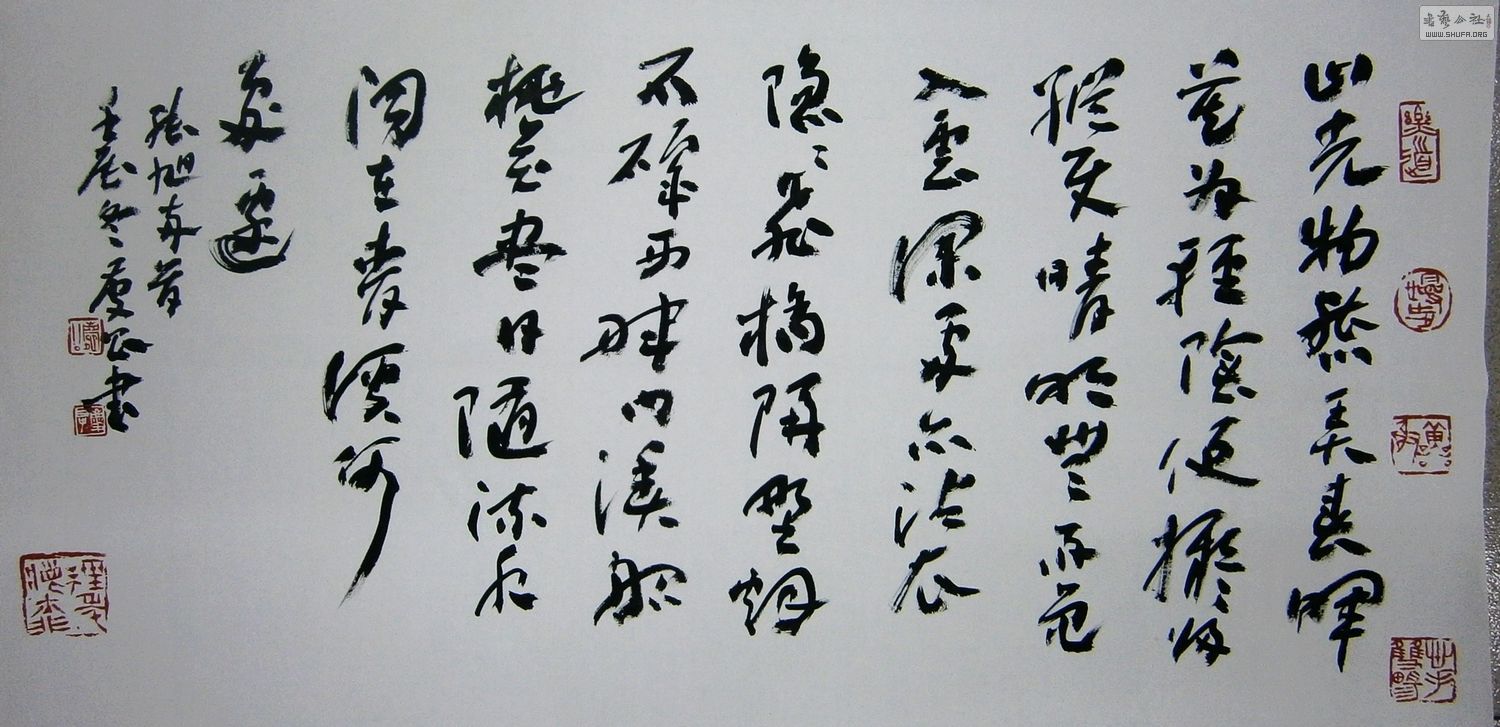 山光物態弄春暉
莫为輕陰便擬歸
縱使晴明無雨色
入雲深處亦沾衣
隐〻飛橋隔野烟
石磯西畔问漁船
桃花盡日隨流水
洞在清溪何
處邊
張旭 首
壬辰冬 書
樂道
書藝公社
WWW.SHUFA.ORG